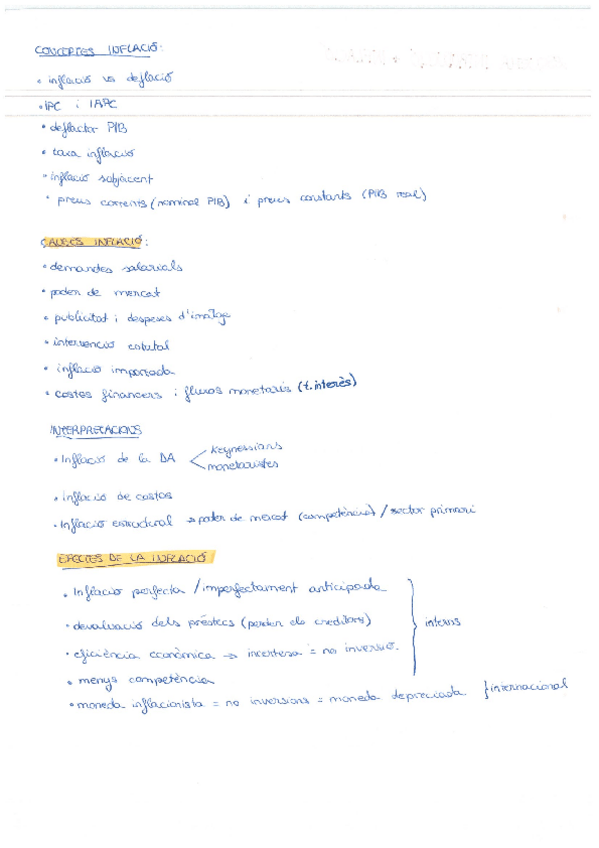 CONCEPTES INFLACIÓ:
• inflació vs deflació
• IPC i IAPC
• deflactor PIB
• taxa inflació
• inflació subjacent
• preus corrents (nominal PIB) i preus constants (PIB real)
CAUSES INFLACIÓ:
• demandes salarials
• poder de mercat
• publicitat i despeses d'imatge
• intervenció estatal
• inflació importada
• costos financers i fluxos monetaris (t. interès)
INTERPRETACIONS
• Inflació de la DA < keynessians
monetaristes
• inflació de costos
• Inflació estructural → poder de mercat (competència) / sector primari
EFECTES DE LA INFLACIÓ:
• Inflació perfecta / imperfectament anticipada
• devaluació dels préstecs (perden els creditors) } interns
• eficiència econòmica → incertesa = no inversió.
• menys competència
• moneda inflacionista = no inversions = moneda depreciada } internacional